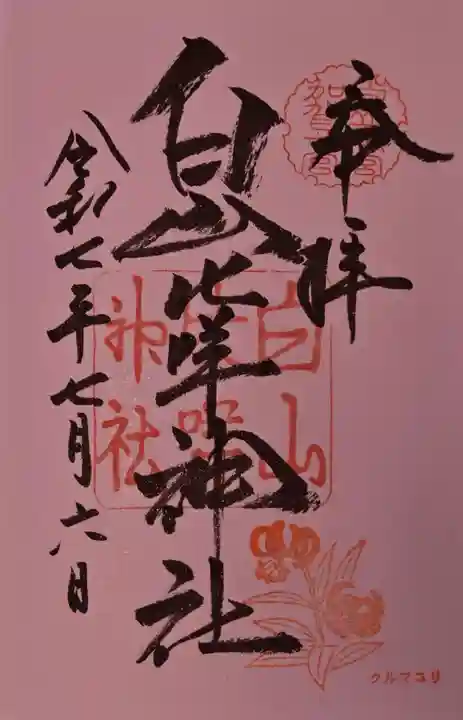 奉拝
加賀一宮
白山比咩神社
白山比咩神社
令和七年七月六日
クルマユリ